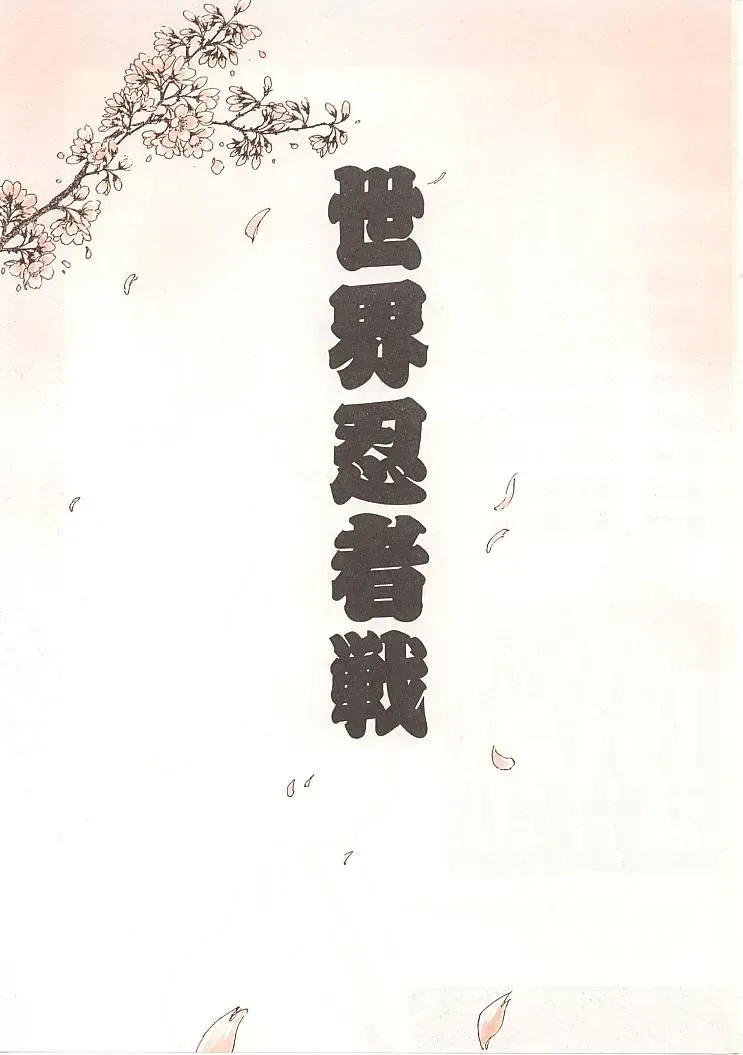 世界忍者戦